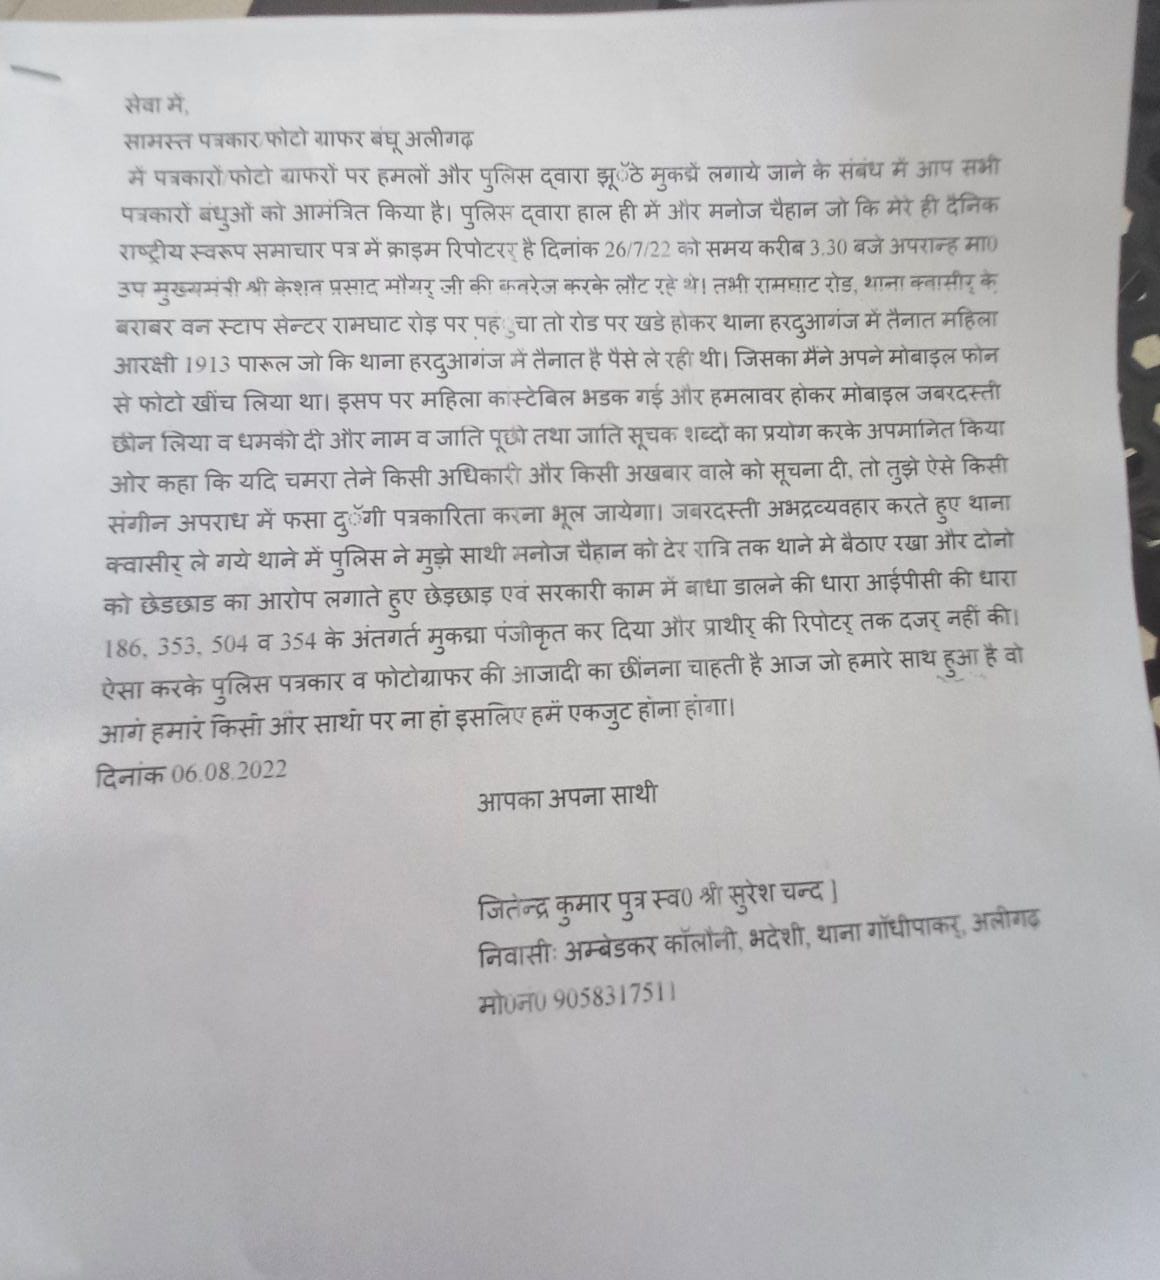 सेवा में,
सामस्त पत्रकार/फोटो ग्राफर बंघू अलीगढ़
में पत्रकारों/फोटो ग्राफरों पर हमलों और पुलिस द्वारा झूॅठे मुकद्में लगाये जाने के संबंध में आप सभी
पत्रकारों बंधुओं को आमंत्रित किया है। पुलिस द्वारा हाल ही में और मनोज चैहान जो कि मेरे ही दैनिक
राष्ट्रीय स्वरूप समाचार पत्र में क्राइम रिपोटरर् है दिनांक 26/7/22 को समय करीब 3.30 बजे अपरान्ह मा0
उप मुख्यमंत्री श्री केशव प्रसाद मौयर् जी की कवरेज करके लौट रहे थे। तभी रामघाट रोड, थाना क्वासीर् के
बराबर वन स्टाप सेन्टर रामघाट रोड़ पर पहंुचा तो रोड पर खडे होकर थाना हरदुआगंज में तैनात महिला
आरक्षी 1913 पारूल जो कि थाना हरदुआगंज में तैनात है पैसे ले रही थी। जिसका मैंने अपने मोबाइल फोन
से फोटो खींच लिया था। इसप पर महिला कांस्टेबिल भडक गई और हमलावर होकर मोबाइल जबरदस्ती
छीन लिया व धमकी दी और नाम व जाति पूछी तथा जाति सूचक शब्दों का प्रयोग करके अपमानित किया
ओर कहा कि यदि चमरा तेने किसी अधिकारी और किसी अखबार वाले को सूचना दी, तो तुझे ऐसे किसी
संगीन अपराध में फसा दुॅगी पत्रकारिता करना भूल जायेगा। जबरदस्ती अभद्रव्यवहार करते हुए थाना
क्वासीर् ले गये थाने में पुलिस ने मुझे साथी मनोज चैहान को देर रात्रि तक थाने मे बैठाए रखा और दोनो
को छेडछाड का आरोप लगाते हुए छेड़छाड़ एवं सरकारी काम में बाधा डालने की धारा आईपीसी की धारा
186, 353, 504 व 354 के अंतगर्त मुकद्मा पंजीकृत कर दिया और प्राथीर् की रिपोटर् तक दजर् नहीं की।
ऐसा करके पुलिस पत्रकार व फोटोग्राफर की आजादी का छींनना चाहती है आज जो हमारे साथ हुआ है वो
आगे हमारे किसी और साथी पर ना हो इसलिए हमें एकजुट होना होगा।
दिनांक 06.08.2022
आपका अपना साथी
जितेन्द्र कुमार पुत्र स्व0 श्री सुरेश चन्द ]
निवासीः अम्बेडकर कॉलौनी, भदेशी, थाना गॉधीपाकर्, अलीगढ़
मो0नं0 9058317511